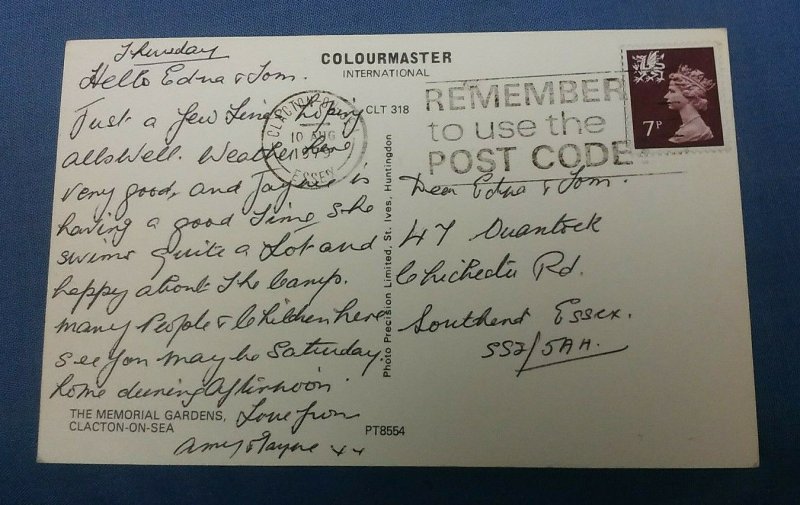 Thursday
Hello Edna & Tom.
Just a few lines hoping
alls Well. Weather here
very good, and Jayne is
having a good Time, she
swims quite a Lot and
happy about The Camp.
Many People & Children here
See you may be Saturday.
home during Afternoon
Love from
Amy & Jayne xx
THE MEMORIAL GARDENS,
CLACTON-ON-SEA
PT8554
COLOURMASTER
INTERNATIONAL
CLT 318
Photo Precision Limited, St. Ives, Huntingdon
CLACTON-ON-SEA
10 AUG
1979
ESSEX
REMEMBER
to use the
POST CODE
7P
Dear Edna & Tom.
47 Quantock
Chichester Rd.
Southend Essex.
SS2/5AH.